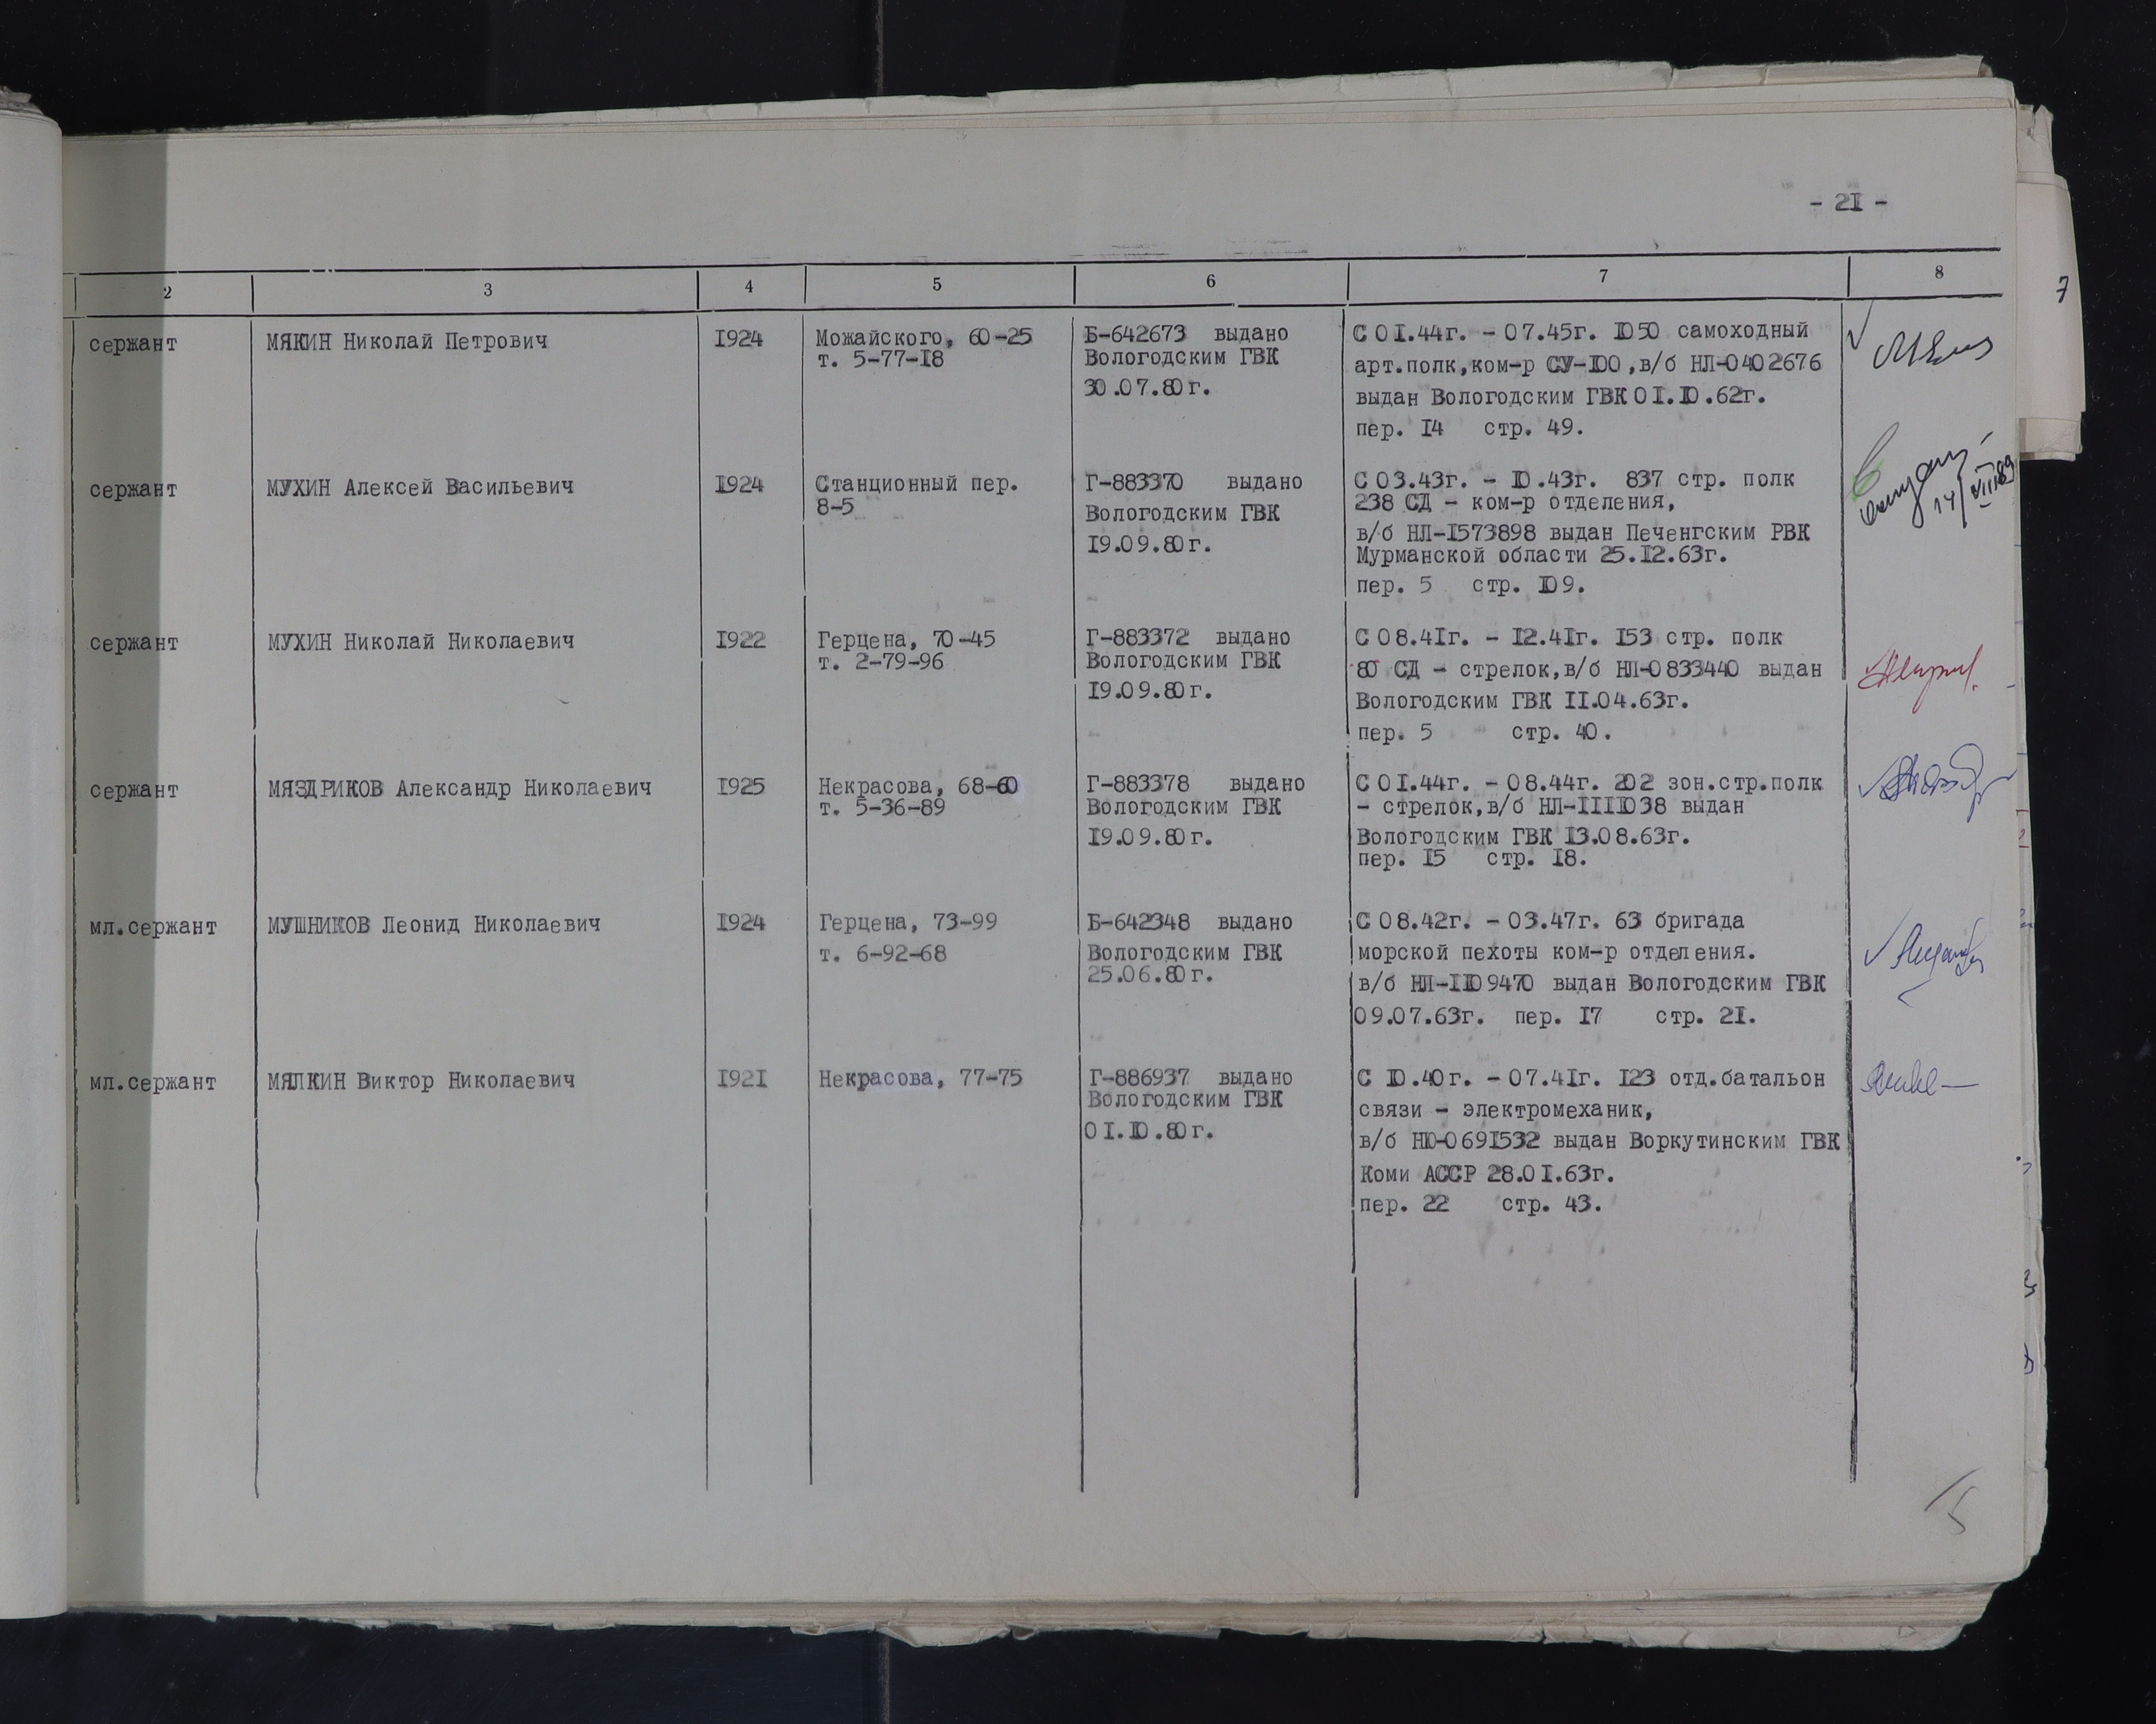 - 2I -
2 3 4 5 6 7 8
7
сержант
МЯКИН Николай Петрович
I924
Можайского, 60-25
т. 5-77-I8
Б-642673 выдано
Вологодским ГВК
30.07.80г.
С 0I.44г. - 07.45г. I050 самоходный
арт.полк,ком-р СУ-I00,в/б НЛ-0402676
выдан Вологодским ГВК 0I.I0.62г.
пер. I4 стр. 49.
сержант
МУХИН Алексей Васильевич
I924
Станционный пер.
8-5
Г-883370 выдано
Вологодским ГВК
I9.09.80г.
С 03.43г. - I0.43г. 837 стр. полк
238 СД - ком-р отделения,
в/б НЛ-I573898 выдан Печенгским РВК
Мурманской области 25.I2.63г.
пер. 5 стр. I09.
сержант
МУХИН Николай Николаевич
I922
Герцена, 70-45
т. 2-79-96
Г-883372 выдано
Вологодским ГВК
I9.09.80г.
С 08.4Iг. - I2.4Iг. I53 стр. полк
80 СД - стрелок,в/б НЛ-0833440 выдан
Вологодским ГВК II.04.63г.
пер. 5 стр. 40.
сержант
МЯЗДРИКОВ Александр Николаевич
I925
Некрасова, 68-60
т. 5-36-89
Г-883378 выдано
Вологодским ГВК
I9.09.80г.
С 0I.44г. - 08.44г. 202 зон.стр.полк
- стрелок,в/б НЛ-IIII038 выдан
Вологодским ГВК I3.08.63г.
пер. I5 стр. I8.
мл.сержант
МУШНИКОВ Леонид Николаевич
I924
Герцена, 73-99
т. 6-92-68
Б-642348 выдано
Вологодским ГВК
25.06.80г.
С 08.42г. - 03.47г. 63 бригада
морской пехоты ком-р отделения.
в/б НЛ-II09470 выдан Вологодским ГВК
09.07.63г. пер. I7 стр. 2I.
мл.сержант
МЯЛКИН Виктор Николаевич
I92I
Некрасова, 77-75
Г-886937 выдано
Вологодским ГВК
0I.I0.80г.
С I0.40г. - 07.4Iг. I23 отд.батальон
связи - электромеханик,
в/б НЮ-069I532 выдан Воркутинским ГВК
Коми АССР 28.0I.63г.
пер. 22 стр. 43.